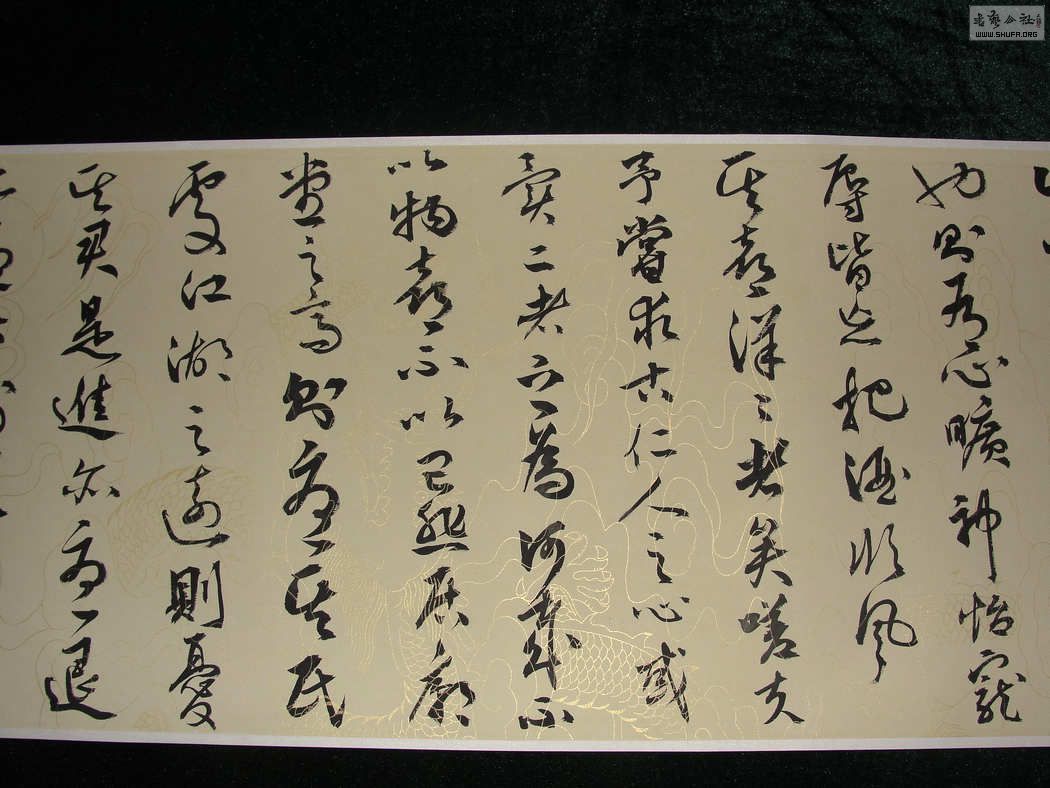 也則有心曠神怡寵
辱皆忘把酒臨風
其喜洋〻者矣嗟夫
予嘗求古仁人之心或
異二者之為何哉不
以物喜不以己悲居廟
堂之高則憂其民
處江湖之遠則憂
其君是進亦憂退
书艺公社
WWW.SHUFA.ORG